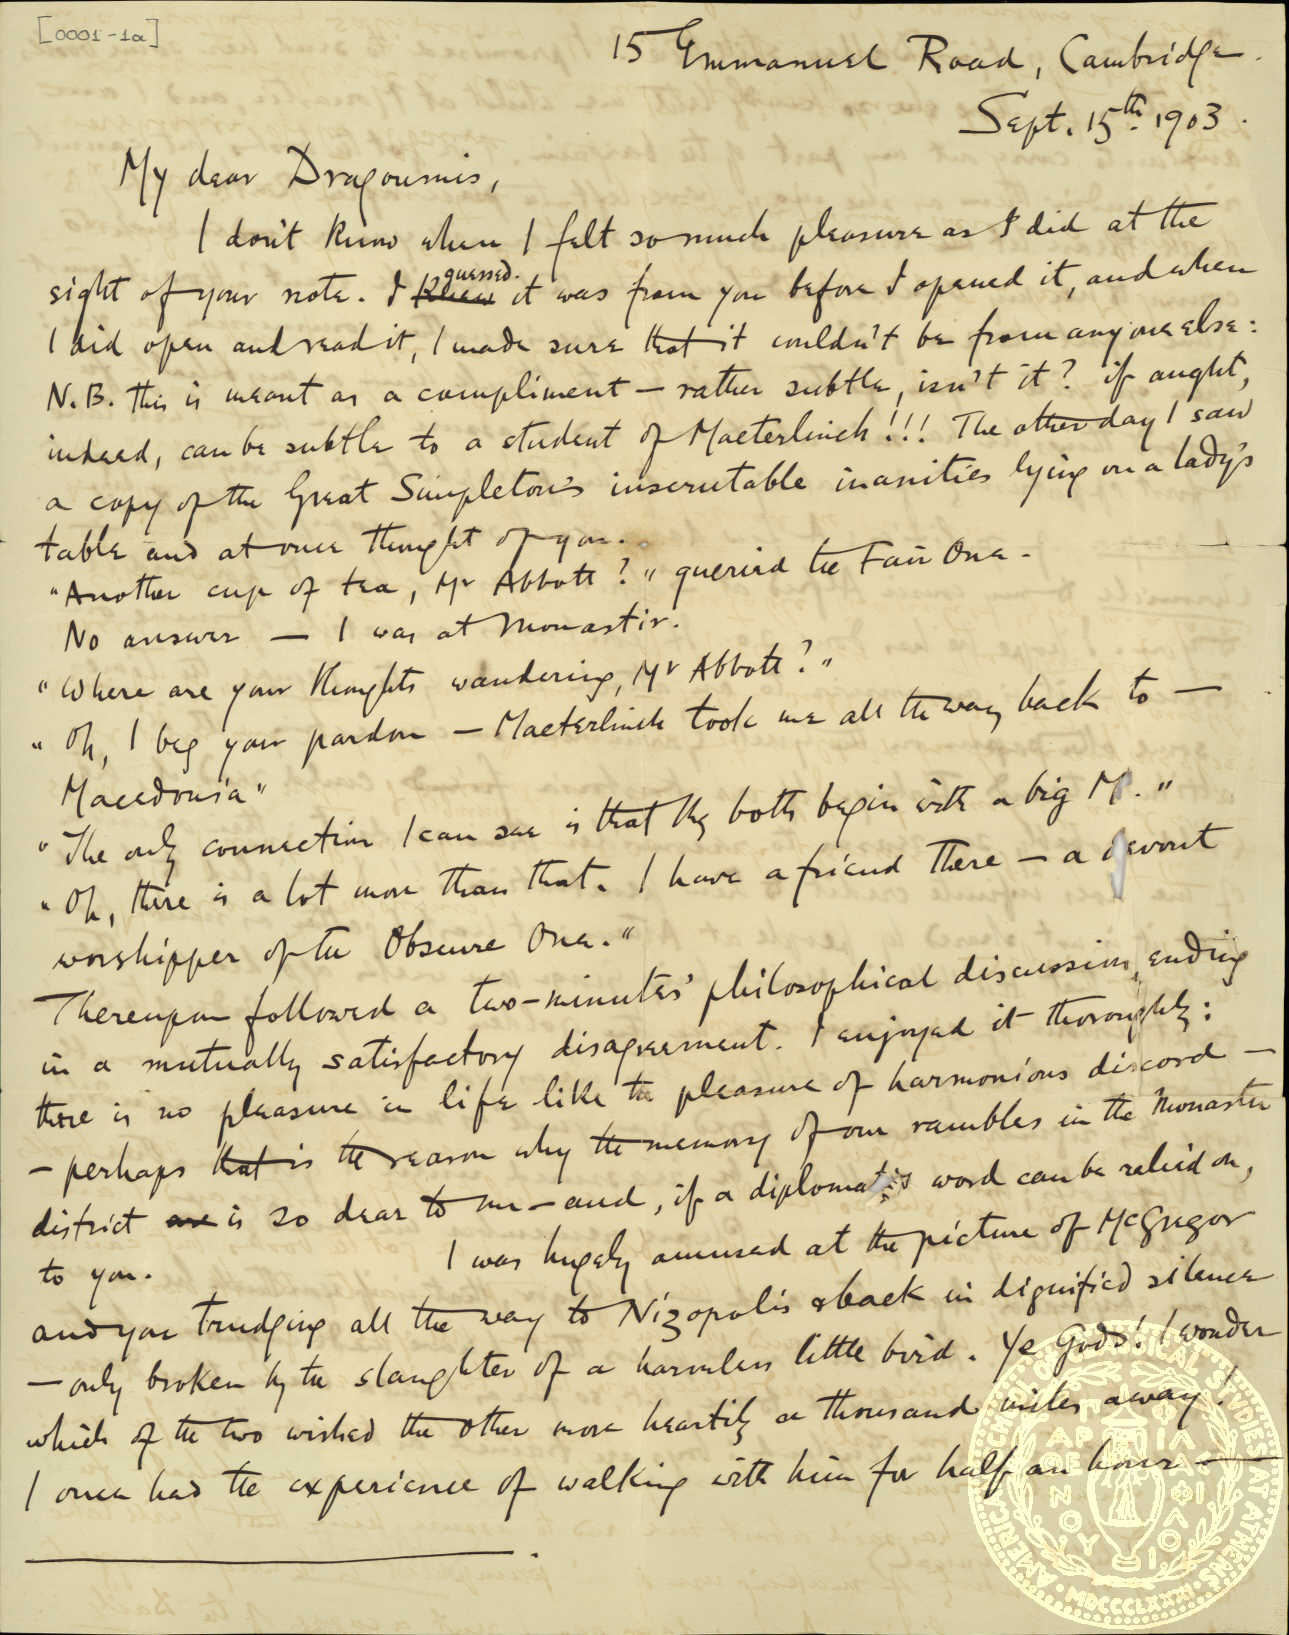 [0001-1a]
15 Emmanuel Road, Cambridge.
Sept. 15th. 1903.
My dear Dragoumis,
I don't know when I felt so much pleasure as I did at the
guessed.
sight of your note. I knew it was from you before I opened it, and when
I did open and read it, I made sure that it couldn't be from any one else:
N.B. this is meant as a compliment — rather subtle, isn't it? if aught,
indeed, can be subtle to a student of Maeterlinck!!! The other day I saw
a copy of the Great Simpleton's inscrutable inanities lying on a lady's
table and at once thought of you.
"Another cup of tea, Mr Abbott?" queried the Fair One.
No answer — I was at Monastir.
"Where are your thoughts wandering, Mr Abbott?"
"Oh, I beg your pardon — Maeterlinck took me all the way back to —
Macedonia"
"The only connection I can see is that they both begin with a big M."
"Oh, there is a lot more than that. I have a friend there — a devout
worshipper of the Obscure One."
Thereupon followed a two-minutes' philosophical discussion, ending
in a mutually satisfactory disagreement. I enjoyed it thoroughly:
there is no pleasure in life like the pleasure of harmonious discord —
— perhaps that is the reason why the memory of our rambles in the Monastir
district are is so dear to me — and, if a diplomat's word can be relied on,
to you. I was hugely amused at the picture of McGregor
and you trudging all the way to Nizopolis & back in dignified silence
— only broken by the slaughter of a harmless little bird. Ye Gods! I wonder
which of the two wished the other more heartily a thousand miles away!
I once had the experience of walking with him for half an hour —
AMERICAN SCHOOL OF CLASSICAL STUDIES AT ATHENS
MDCCCLXXXI